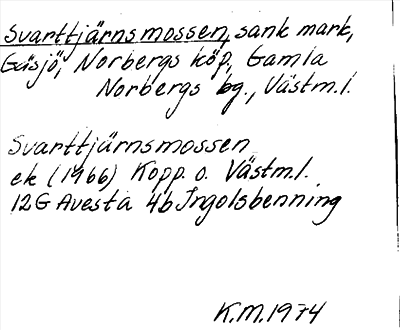 Svarttjärnsmossen, sank mark,
Gåsjö, Norbergs köp, Gamla
Norbergs bg., Västm.l.
Svarttjärnsmossen
ek (1966) Kopp. o. Västm.l.
12G Avesta 4b Ingolsbenning
K.M. 1974